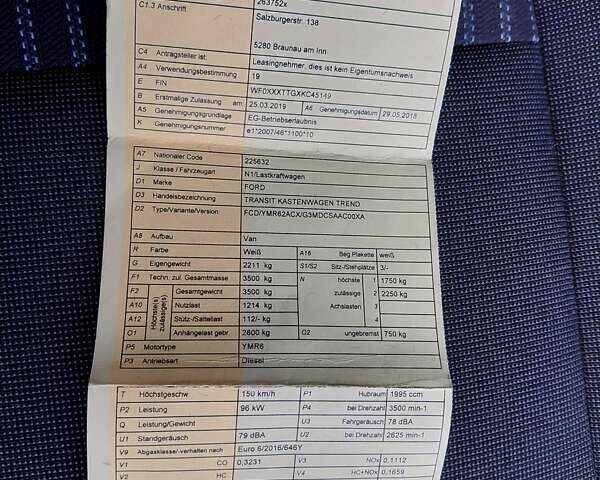 263752x
C1.3 Anschrift
Salzburgerstr. 138
5280 Braunau am Inn
C4 Antragsteller ist: Leasingnehmer, dies ist kein Eigentumsnachweis
A4 Verwendungsbestimmung 19
E FIN WF0XXXTTGXKC45149
B Erstmalige Zulassung am: 25.03.2019 A6 Genehmigungsdatum 29.05.2018
A5 Genehmigungsgrundlage EG-Betriebserlaubnis
K Genehmigungsnummer e1*2007/46*1100*10
A7 Nationaler Code 225632
J Klasse / Fahrzeugart N1/Lastkraftwagen
D1 Marke FORD
D3 Handelsbezeichnung TRANSIT KASTENWAGEN TREND
D2 Type/Variante/Version FCD/YMR62ACX/G3MDCSAAC00XA
A8 Aufbau Van
R Farbe Weiß A16 Beg.Plakette weiß
G Eigengewicht 2211 kg S1/S2 Sitz-/Stehplätze 3/-
F1 Techn. zul. Gesamtmasse 3500 kg N höchste 1 1750 kg
F2 Höchste(s) zulässige(s) Gesamtgewicht 3500 kg zulässige 2 2250 kg
A10 Nutzlast 1214 kg Achslasten 3
A12 Stütz-/Sattellast 112/- kg 4
O1 Anhängelast gebr. 2800 kg O2 ungebremst 750 kg
P5 Motortype YMR6
P3 Antriebsart Diesel
T Höchstgeschw 150 km/h P1 Hubraum 1995 ccm
P2 Leistung 96 kW P4 bei Drehzahl 3500 min-1
Q Leistung/Gewicht U3 Fahrgeräusch 78 dBA
U1 Standgeräusch 79 dBA U2 bei Drehzahl 2625 min-1
V9 Abgasklasse/-verhalten nach Euro 6/2016/646Y
V1 CO 0,3231 V3 NOx 0,1112
V2 HC V4 HC+NOx 0,1659